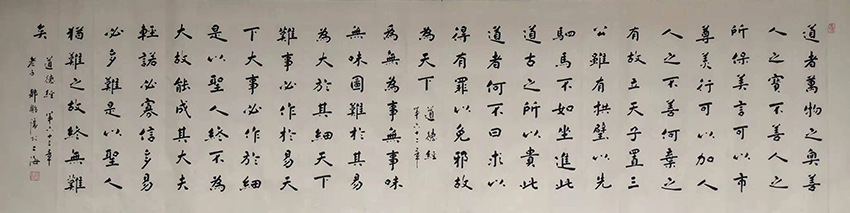 道者萬物之奧善
人之寶不善人之
所保美言可以市
尊美行可以加人
人之不善何棄之
有故立天子置三
公雖有拱璧以先
駟馬不如坐進此
道古之所以貴此
道者何不曰求以
得有罪以免邪故
為天下
道德經
第六十二章
為無為事無事味
無味圖難於其易
為大於其細天下
難事必作於易天
下大事必作於細
是以聖人終不為
大故能成其大夫
輕諾必寡信多易
必多難是以聖人
猶難之故終無難
矣
道德經 第六十三章
老子 上海